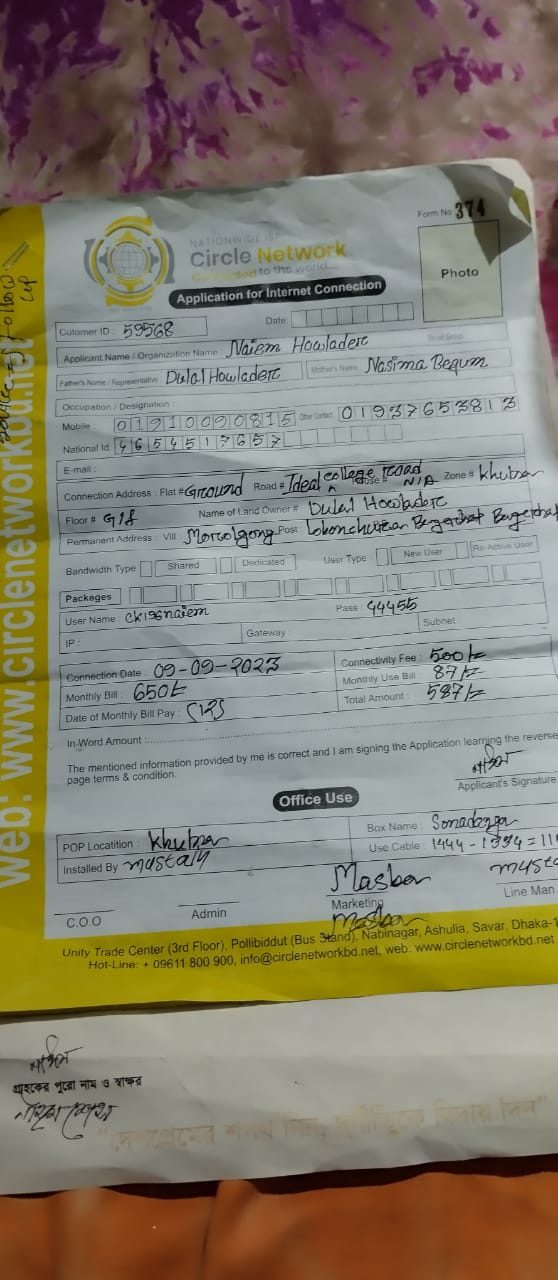 Form No 374
NATIONWIDE ISP
Circle Network
Connected to the world...
Application for Internet Connection
Photo
Cutomer ID : 59568
Date:
Applicant Name / Organization Name : Naiem Howladerc
Father's Name / Representative Dulal Howladerc Mother's Name Nasima Begum
Occupation / Designation :
Mobile : 01910090815 Other Contact 01937653813
National Id: 4654517657
E-mail :
Connection Address : Flat # Ground Road # Ideal college road House # N/A Zone # Khulna
Floor # G1f Name of Land Owner # Dulal Howladerc
Permanent Address : Vill Morcolgong Post
Bandwidth Type Shared Dedicated User Type New User Re-Active User
Packages
User Name : ck196naiem Pass : 44455
IP : Gateway : Subnet :
Connection Date : 09-09-2023 Connectivity Fee : 500/=
Monthly Bill : 650 Monthly Use Bill : 87/=
Date of Monthly Bill Pay : Total Amount : 587/=
In-Word Amount :
The mentioned information provided by me is correct and I am signing the Application learning the reverse
page terms & condition.
Applicant's Signature
Office Use
POP Locatition : Khulna Box Name : Sonadanga
Installed By mustain Use Cable : 1444 - 1334 = 110
C.O.O Admin Marketing Line Man
Unity Trade Center (3rd Floor), Pollibiddut (Bus Stand), Nabinagar, Ashulia, Savar, Dhaka-1
Hot-Line: + 09611 800 900, info@circlenetworkbd.net, web: www.circlenetworkbd.net
web: www.circlenetworkbd.net
গ্রাহকের পুরো নাম ও স্বাক্ষর
"দেশপ্রেমের শপথ নিন, দুর্নীতিকে বিদায় দিন"